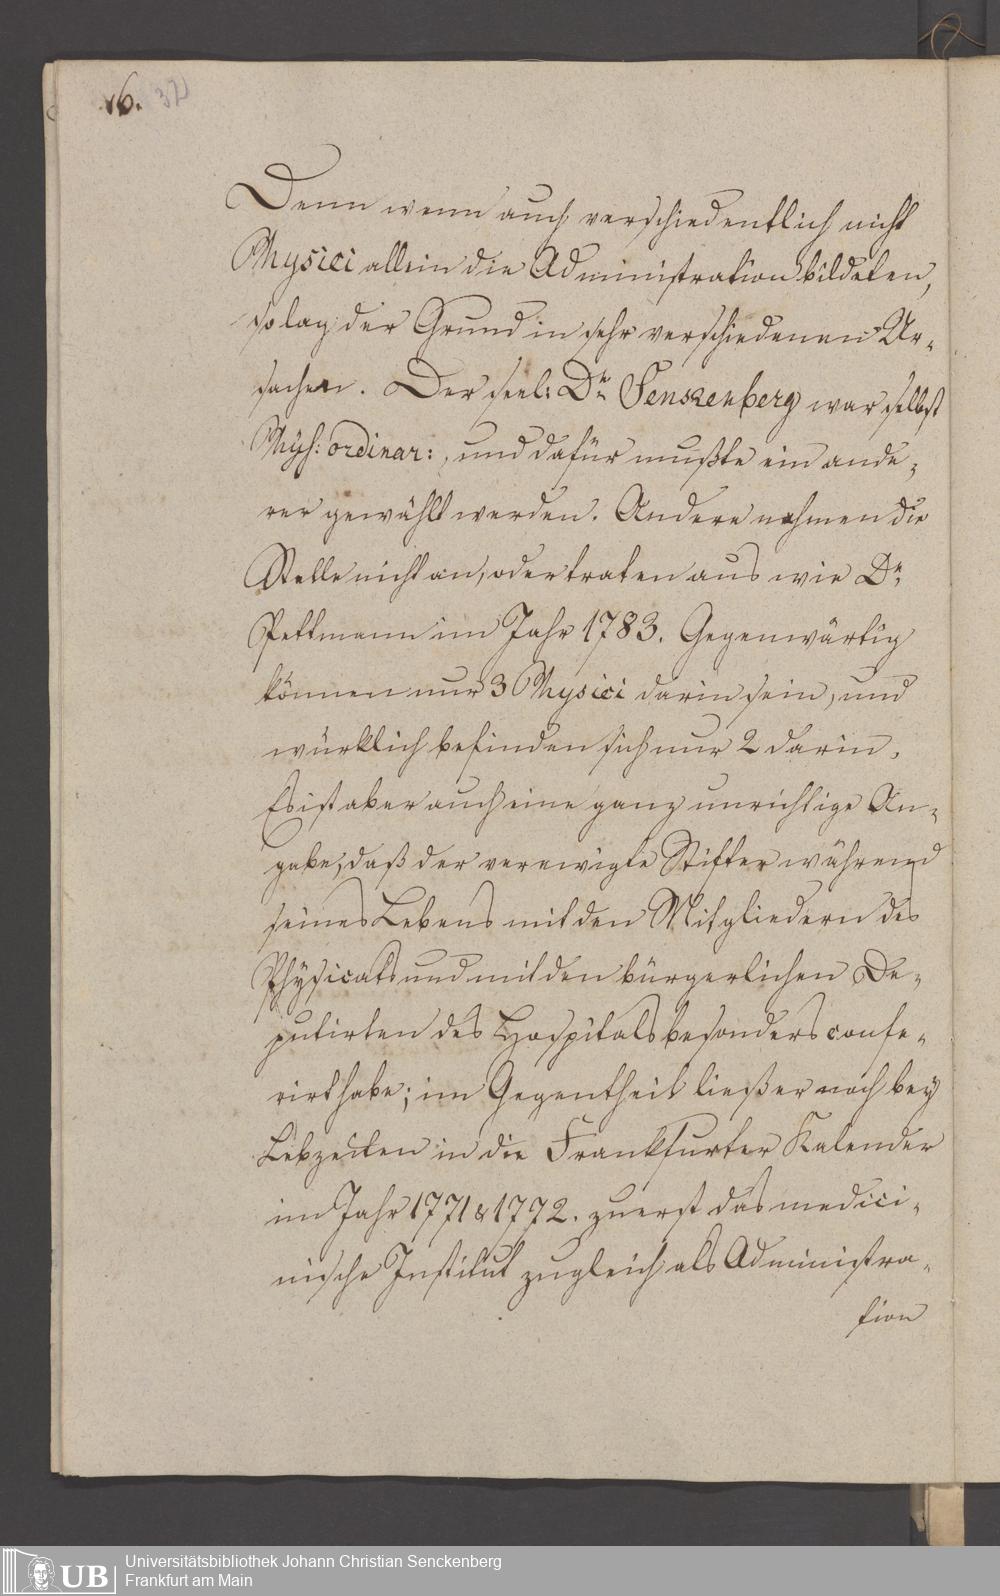 16. 32)
Denn wenn auch verschiedentlich nicht
Physici allein die Administration bildeten,
so lag der Grund in sehr verschiedenen Ur-
sachen. Der seel: Dr. Senkenberg war selbst
Phys: ordinar:, und dafür mußte ein ande-
rer gewählt werden. Andere nahmen die
Stelle nicht an, oder traten aus wie Dr.
Pettmann im Jahr 1783. Gegenwärtig
können nur 3 Physici darin sein, und
würklich befinden sich nur 2 darin.
Es ist aber auch eine ganz unrichtige An-
gabe, daß der verewigte Stifter während
seines Lebens mit den Mitgliedern des
Physicats und mit den bürgerlichen De-
putirten des Hospitals besonders confe-
rirt habe; im Gegentheil ließ er noch bey
Lebzeiten in die Frankfurter Kalender
im Jahr 1771 & 1772. zuerst das medici-
nische Institut zugleich als Administra-
tion
UB
Universitätsbibliothek Johann Christian Senckenberg
Frankfurt am Main